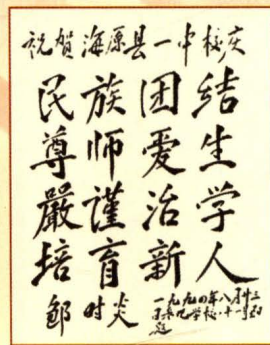 祝贺海原县一中校庆
民族团结
尊师爱生
嚴謹治学
培育新人
邹时炎
一九九四年八月十三日
题